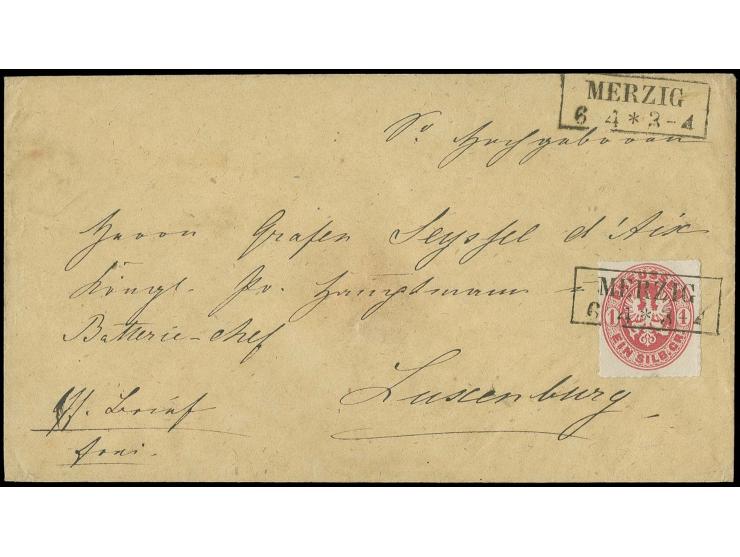 MERZIG
6 4 * 3-4
Sr Hochgeboren
Herrn Grafen Seyssel d'Aix
Königl. Pr. Hauptmann =
Batterie-chef
Luxenburg
Brief
frei.
MERZIG
6 4 * 3 4
PREUSSEN
1 EIN SILB.GR.